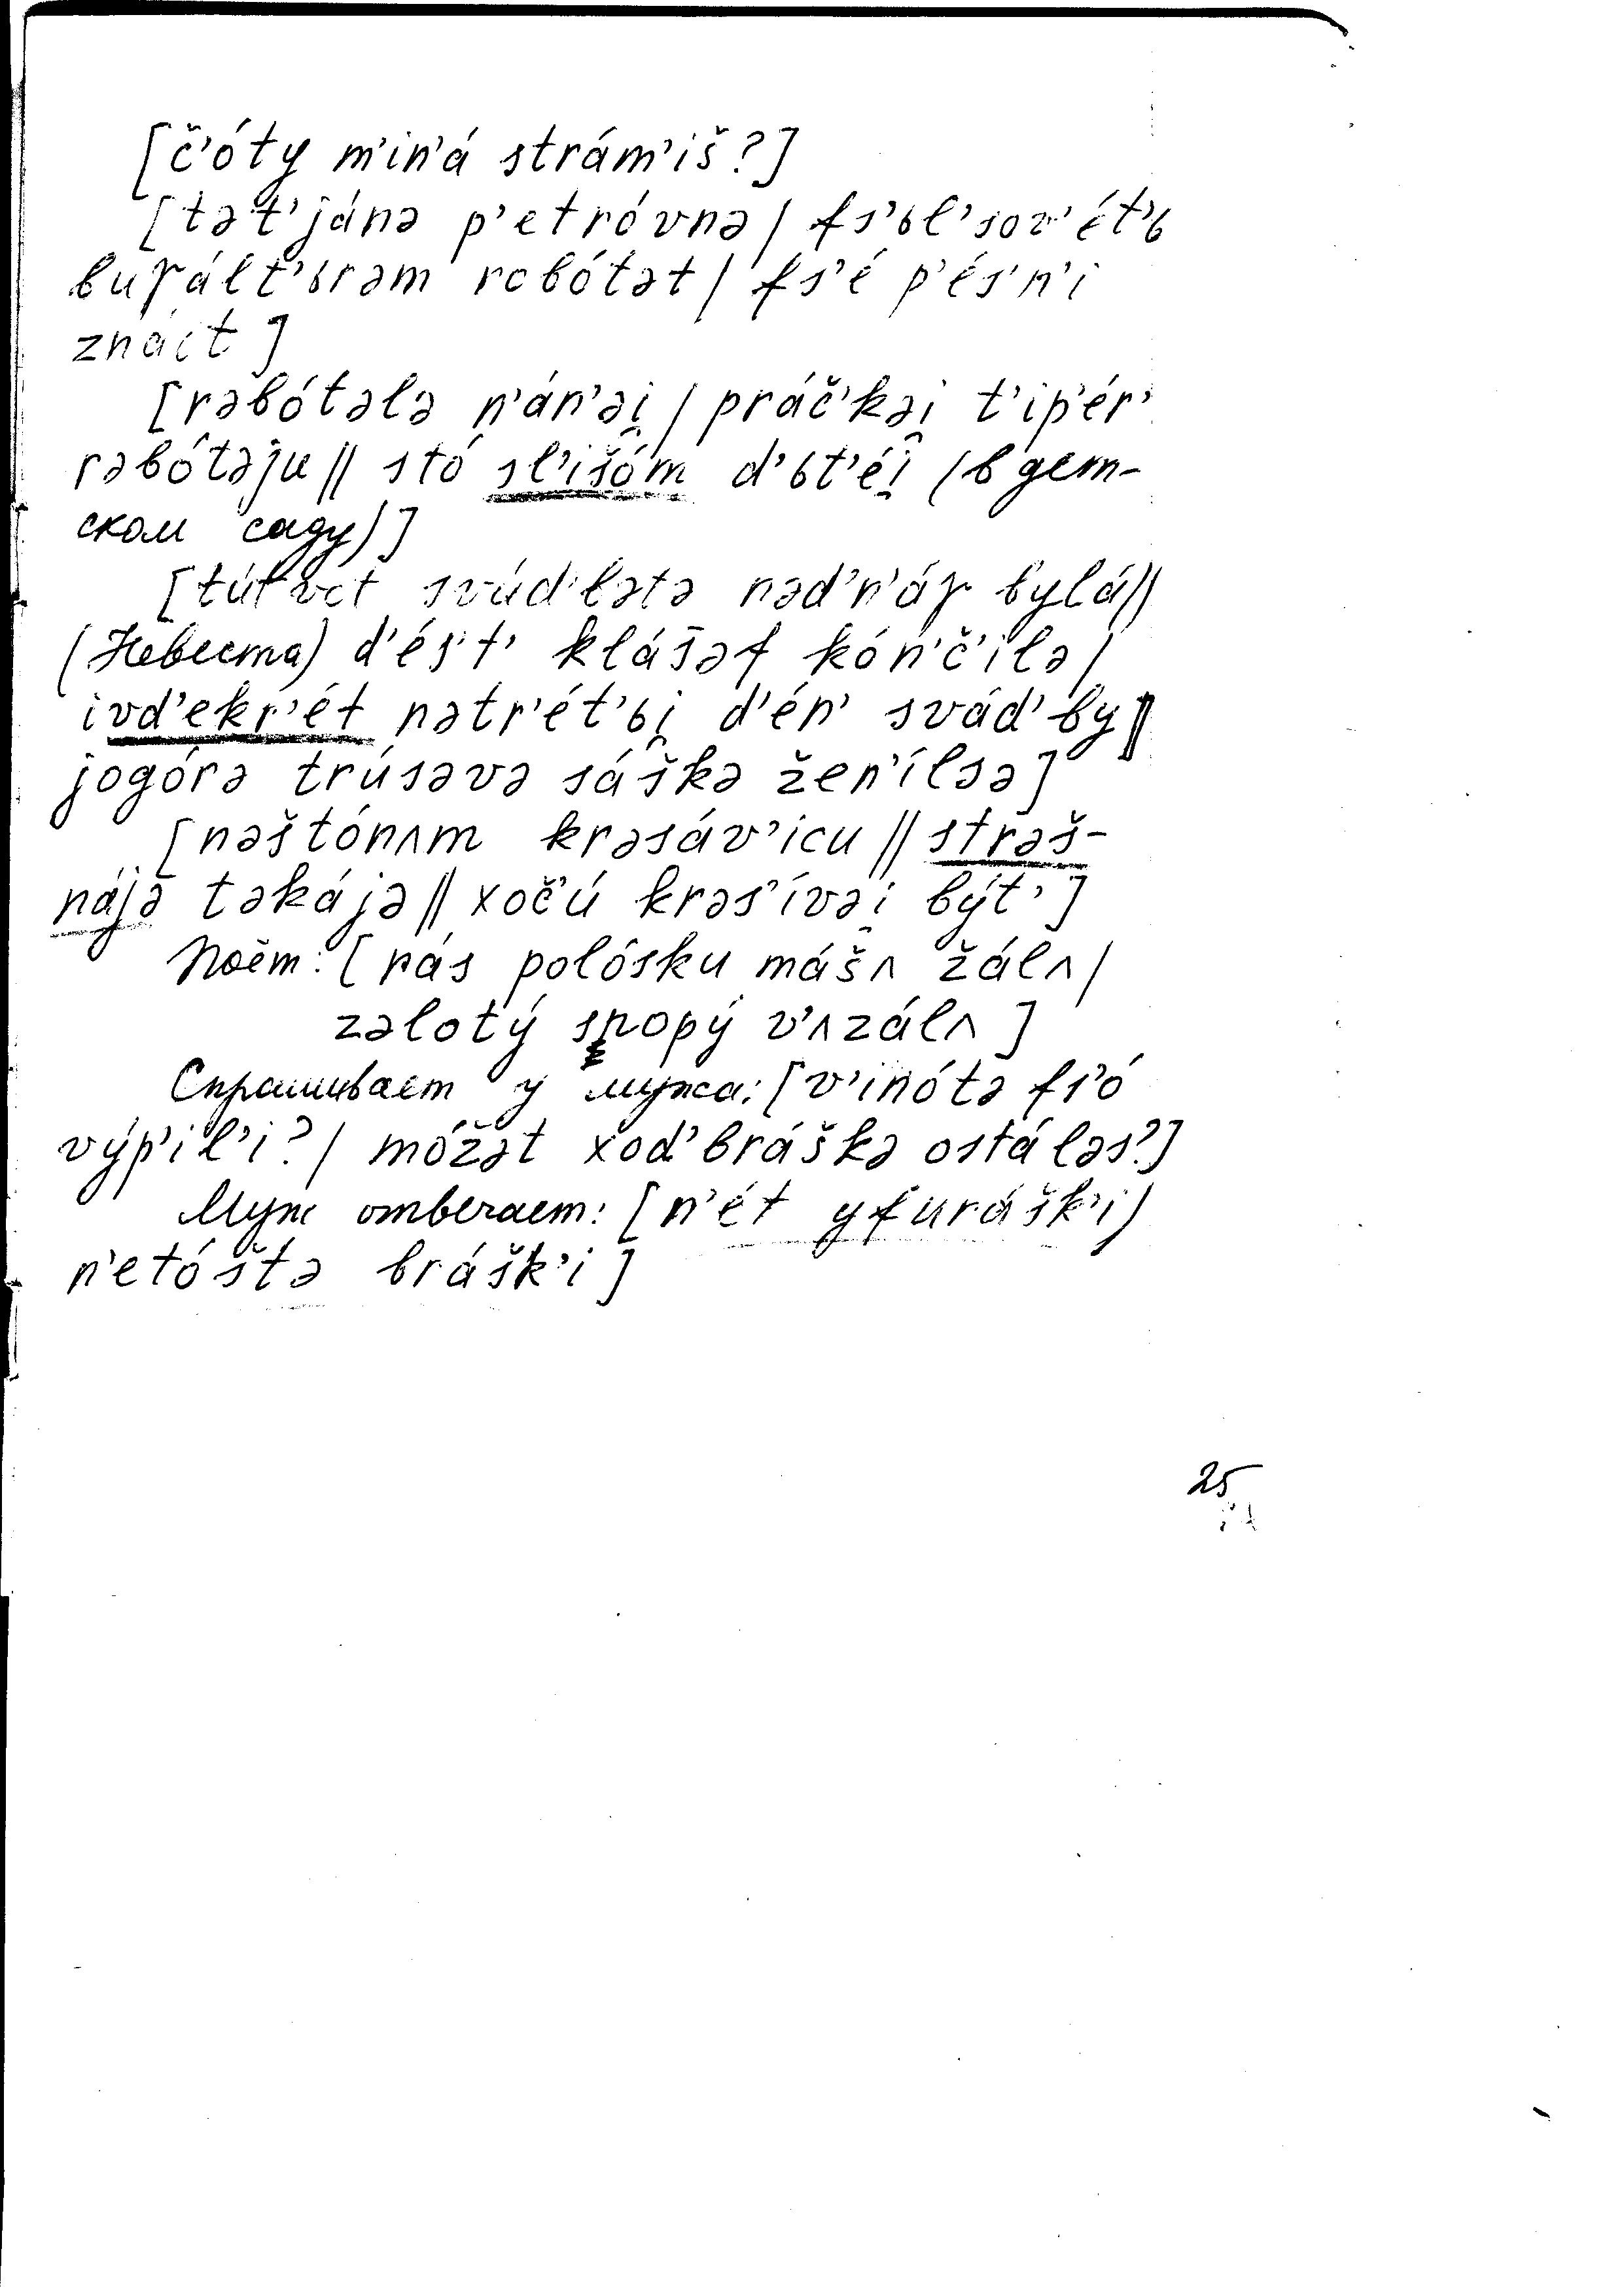 [č’óty m’in’á strám’iš?]
[tət’jánə p’etróvnə/ fs’ьl’sov’ét’ь
buɣált’ьrəm robótət/ fs’é p’és’n’i
znáit]
[rəbótələ n’án’əi̯/ práč’kəi̯ t’ip’ér’
rəbótəju// stó sl’išóm d’ьt’éi̯ (в дет-
ском саду)]
[tútvot svád’bətə nəd’n’áɣ bylá//
(Невеста) d’és’t’ klás̄əf kón’č’ilə/
ivd’ekr’ét nətr’ét’ьi̯ d’én’ svád’by//
jogórə trúsəvə sáškə žen’ílsə]
[nəštónʌm krəsáv’icu// strəš-
nájə təkájə// xoč’ú krəs’ívəi̯ být’]
Поём: [rás polósku mášʌ žálʌ/
zəlotý snopý v’ʌzálʌ]
Спрашивает у мужа: [v’inótə fs’ó
výp’il’i?/ móžət xod’ bráškə ostáləs?]
Муж отвечает: [n’ét yfurášk’i/
n’etóštə brášk’i]
25